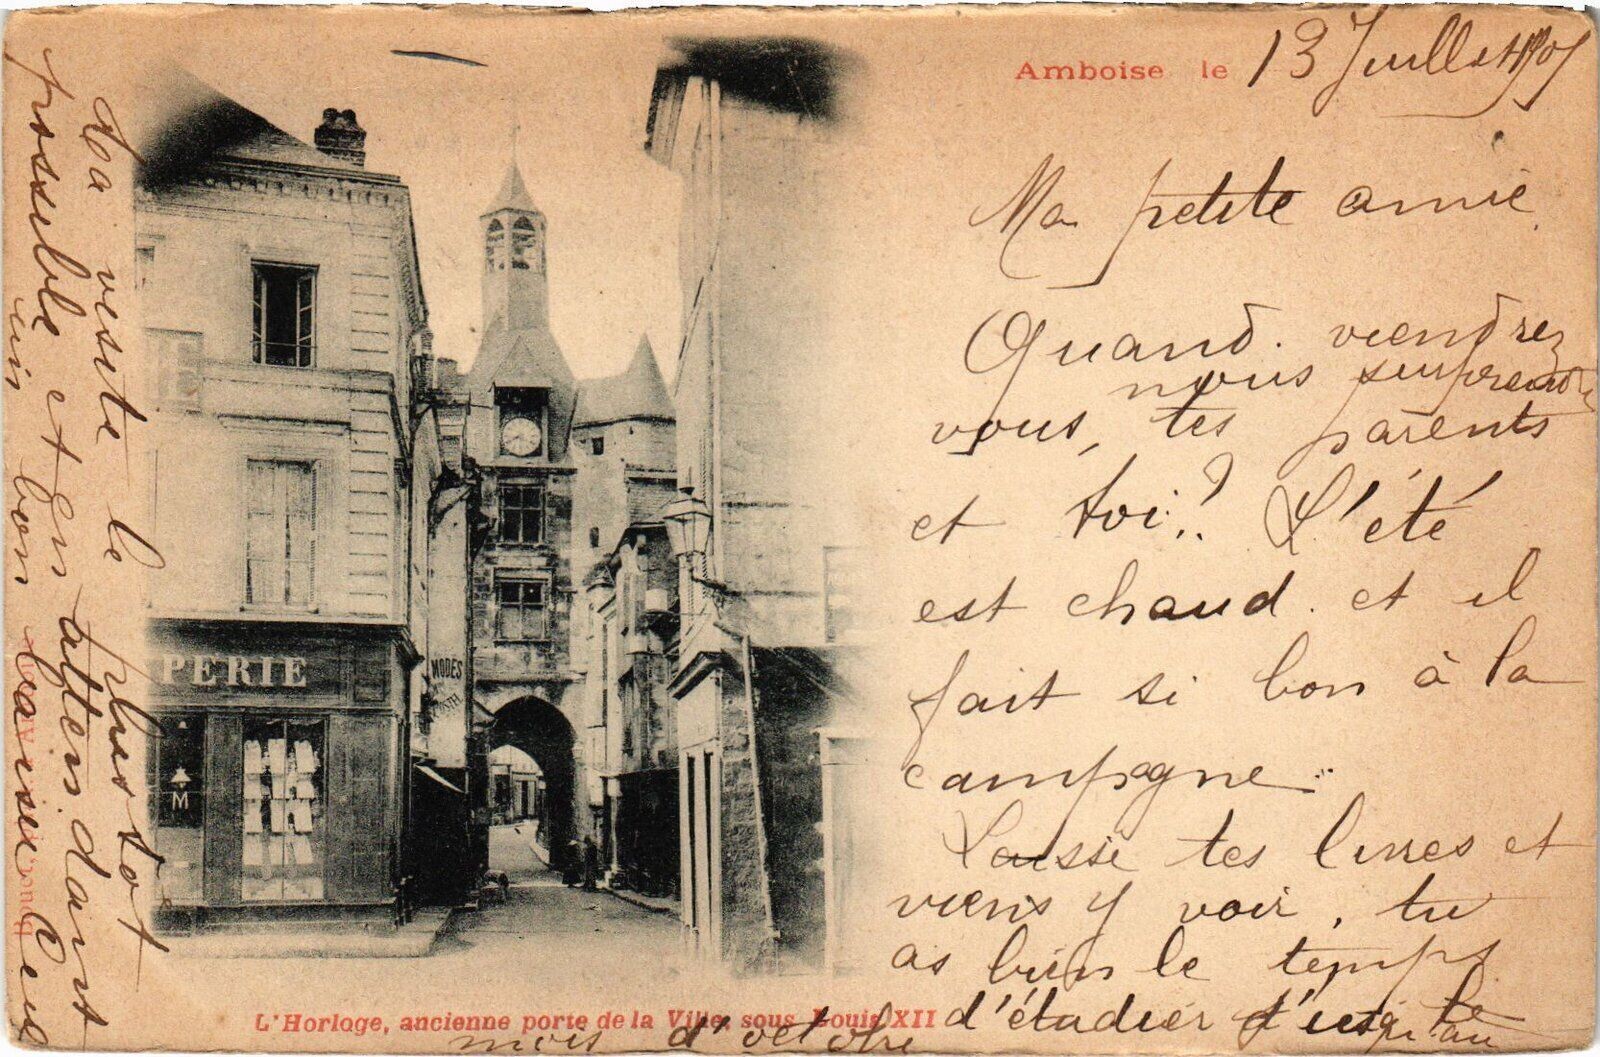 Amboise le 13 Juillet
Ma petite amie
Quand viendrez
nous surprendre
vous, tes parents
et toi? L'été
est chaud et il
fait si bon à la
campagne.
Laisse tes livres et
viens y voir, tu
as bien le temps
d'étudier jusqu'au
mois d'octobre
ta visite le plus tot
possible et en attendant
un bon baiser
L'Horloge, ancienne porte de la Ville, sous Louis XII
PERIE
MODES
M